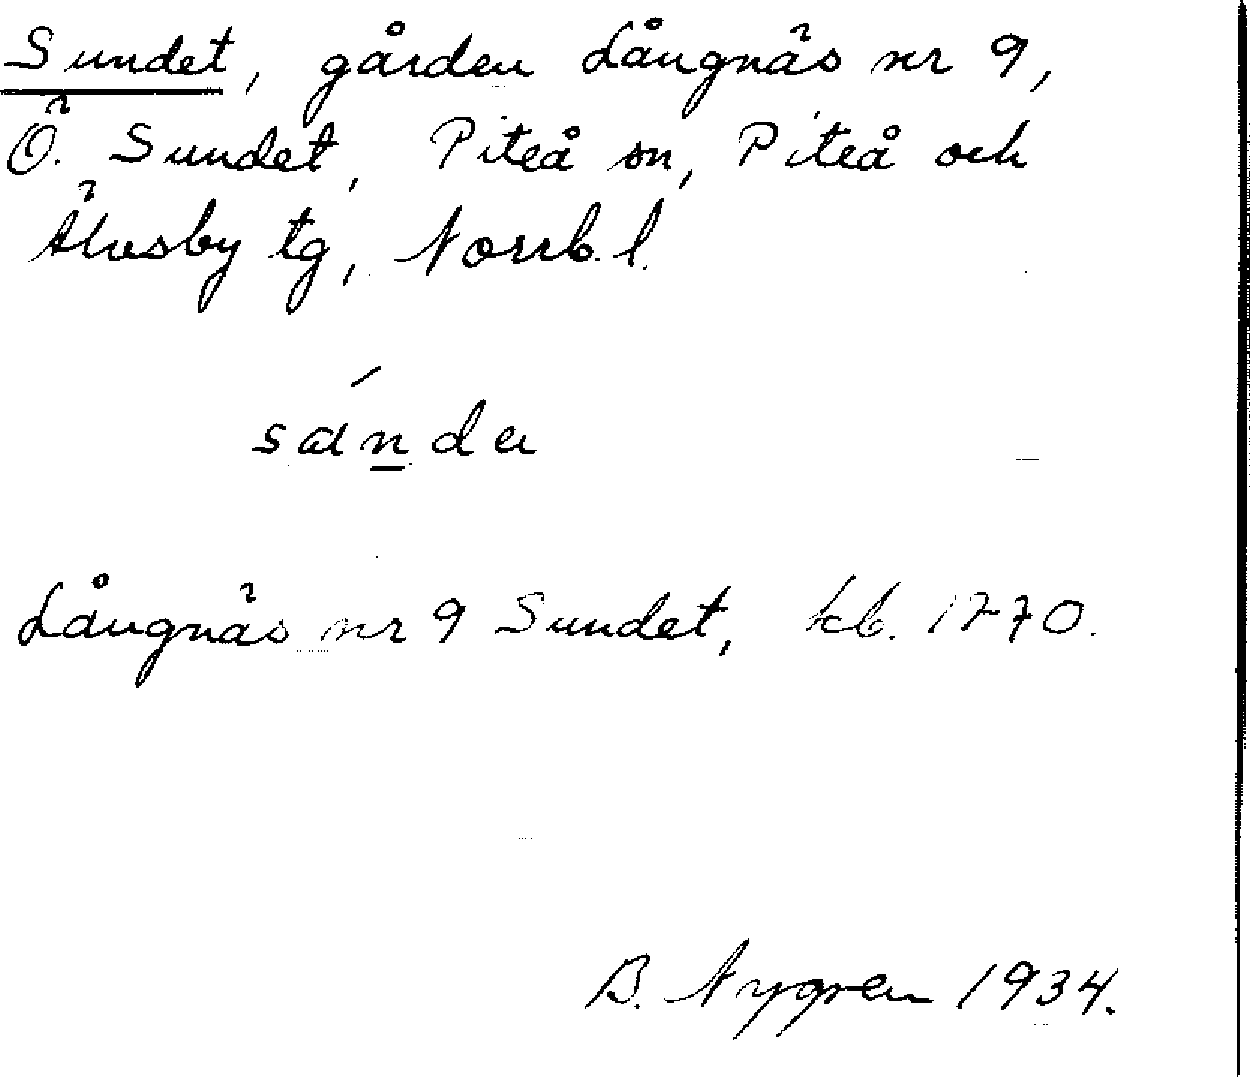 Sundet, gården Långnäs nr 9,
Ö. Sundet, Piteå sn, Piteå och
Älvsby tg, Norrb. l.
sánda
Långnäs nr 9 Sundet, kb. 1770.
B. Nygren 1934.